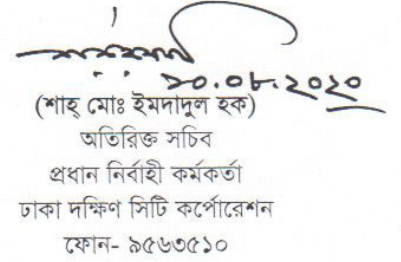 ১০.০৮.২০২০
(শাহ্ মোঃ ইমদাদুল হক)
অতিরিক্ত সচিব
প্রধান নির্বাহী কর্মকর্তা
ঢাকা দক্ষিণ সিটি কর্পোরেশন
ফোন- ৯৫৬৩৫১০